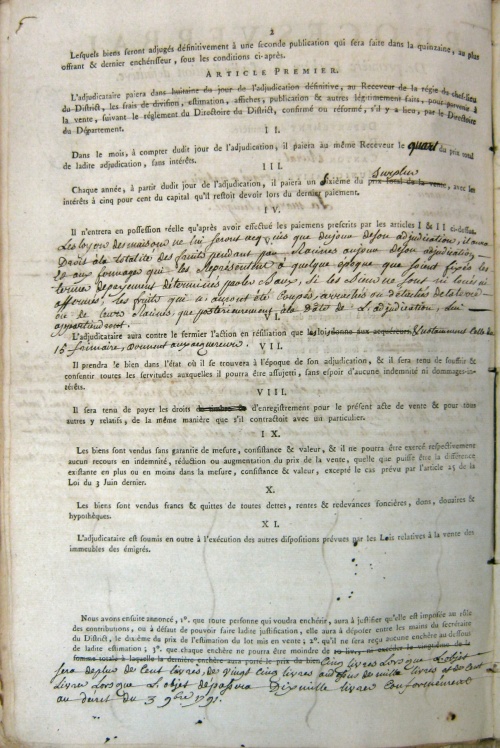 5
2
Lesquels biens seront adjugés définitivement à une seconde publication qui sera faite dans la quinzaine, au plus
offrant & dernier enchérisseur, sous les conditions ci-après.
ARTICLE PREMIER.
L'adjudicataire paiera dans huitaine du jour de l'adjudication définitive, au Receveur de la régie du chef-lieu
du District, les frais de division, estimation, affiches, publication & autres légitimement faits, pour parvenir à
la vente, suivant le réglement du Directoire du District, confirmé ou réformé, s'il y a lieu, par le Directoire
du Département.
II.
Dans le mois, à compter dudit jour de l'adjudication, il paiera au même Receveur le quart du prix total
de ladite adjudication, sans intérêts.
III.
surplus
Chaque année, à partir dudit jour de l'adjudication, il paiera un sixième du prix total de la vente, avec les
intérêts à cinq pour cent du capital qu'il restoit devoir lors du dernier paiement.
IV.
Il n'entrera en possession réelle qu'après avoir effectué les paiemens prescrits par les articles I & II ci-dessus.
V.
Les loyers des maisons ne lui seront acquis que du jour de son adjudication, il aura
Droit à la totalité des fruits pendant par Racines au jour de son adjudication
et aux fermages qui les Représentent à quelque époque que soient fixés les
termes de payement déterminés par les Baux, si les biens ne sont ni loués ni
affermés, les fruits qui auront été coupés, arrachés ou détachés de la terre
ou de leurs Racines que postérieurement à la date de L'adjudication, lui
appartiendront.
VI.
L'adjudicataire aura contre le fermier l'action en résiliation que les lois donne aux acquéreurs & notamment celle du
15 frimaire, donnent aux acquereurs.
VII.
Il prendra le bien dans l'état où il se trouvera à l'époque de son adjudication, & il sera tenu de souffrir &
consentir toutes les servitudes auxquelles il pourra être assujetti, sans espoir d'aucune indemnité ni dommages-in-
térêts.
VIII.
Il sera tenu de payer les droits de timbre & d'enregistrement pour le présent acte de vente & pour tous
autres y relatifs, de la même manière que s'il contractoit avec un particulier.
IX.
Les biens sont vendus sans garantie de mesure, consistance & valeur, & il ne pourra être exercé respectivement
aucun recours en indemnité, réduction ou augmentation du prix de la vente, quelle que puisse être la différence
existante en plus ou en moins dans la mesure, consistance & valeur, excepté le cas prévu par l'article 25 de la
Loi du 3 Juin dernier.
X.
Les biens sont vendus francs & quittes de toutes dettes, rentes & redevances foncières, dons, douaires &
hypothèques.
XI.
L'adjudicataire est soumis en outre à l'exécution des autres dispositions prévues par les Lois relatives à la vente des
immeubles des émigrés.
Nous avons ensuite annoncé, 1°. que toute personne qui voudra enchérir, aura à justifier qu'elle est imposée au rôle
des contributions, ou à défaut de pouvoir faire ladite justification, elle aura à déposer entre les mains du secrétaire
du District, le dixième du prix de l'estimation du lot mis en vente; 2°. qu'il ne sera reçu aucune enchère au dessous
de ladite estimation; 3°. que chaque enchère ne pourra être moindre de 10 liv., ni excéder le vingtième de la
somme totale à laquelle la dernière enchère aura porté le prix du bien Cinq livres Lorsque L'objet
sera de plus de Cent livres, de vingt Cinq livres au dessus de mille livres et de Cent
Livres Lorsque L'objet dépassera Dix mille livres Conformément
au decret du 3 9bre 1791.